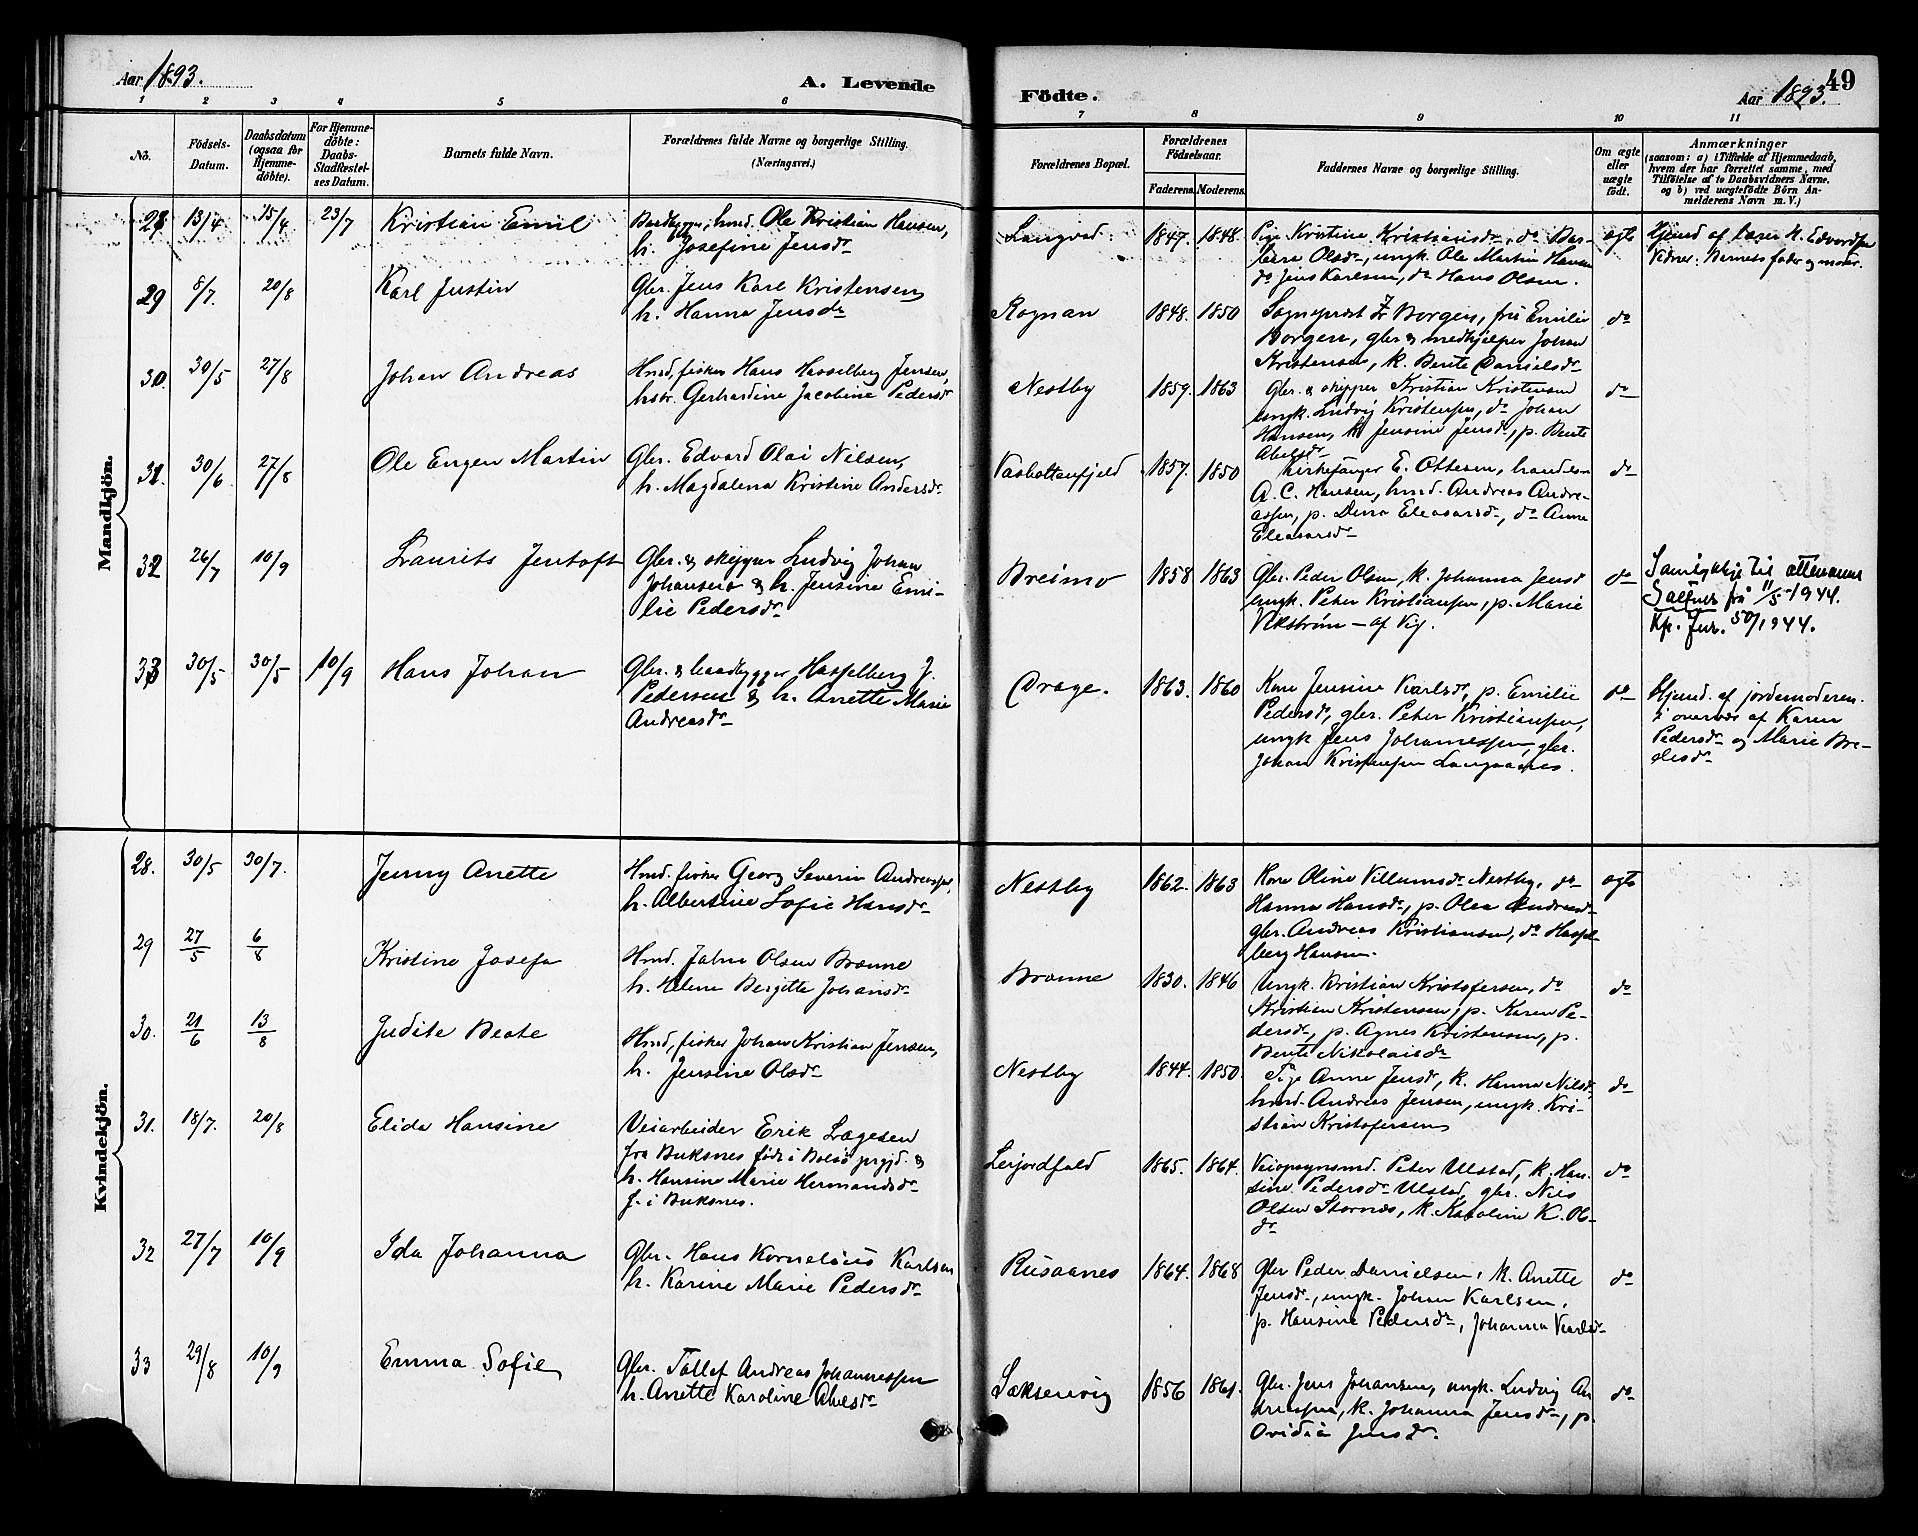 Aar 1893.
A. Levende
Födte.
Aar 1893.
49
1 2 3 4 5 6 7 8 9 10 11
No.
Födsels-
Datum.
Daabsdatum
(ogsaa for
Hjemme-
döbte).
For Hjemme-
döbte:
Daabs-
Stadfæstel-
ses Datum.
Barnets fulde Navn.
Forældrenes fulde Navne og borgerlige Stilling.
(Næringsvei.)
Forældrenes Bopæl.
Forældrenes
Födselsaar.
Faderens. Moderens.
Faddernes Navne og borgerlige Stilling.
Om ægte
eller
uægte
födt.
Anmærkninger
(saasom: a) i Tilfælde af Hjemmedaab,
hvem der har forrettet samme, med
Tilföielse af to Daabsvidners Navne.
og b) ved uægtefödte Börn An-
melderens Navn m.V.)
Mandkjön.
28 13/4 15/4 23/7 Kristian Emil
Baadbygger, hmd. Ole Kristian Hansen,
h. Josefine Jensdr
Langvad. 1847. 1848.
Pige Kristine Kristiansdr, do Bar-
bara Olsdr, ungk. Ole Martin Hansen
do Jens Karlsen, do Hans Olsen.
ægte
Hjemd af lærer H. Edvardsen
Vidner: Barnets fader og moder.
29 8/7. 20/8 Karl Justin
Gbr. Jens Karl Kristensen
h. Hanna Jensdr
Rognan 1848. 1850
Sogneprest Borgen, fru Emilie
Borgen, gbr & medhjelper Johan
Kristensen, k. Bente Danielsdr
do
30. 30/5 27/8 Johan Andreas
Hmd, fisker Hans Hasselberg Jensen,
hstr. Gerhardine Jacobine Pedersdr
Nestby 1859. 1863
Gbr. & skipper Kristian Kristensen
ungk. Ludvig Kristensen, do Johan
Hansen, k. Jensine Jensdr, p. Bente
Abelsdr
do
31. 30/6 27/8 Ole Eugen Martin
Gbr. Edvard Olai Nilsen,
h. Magdalena Kristine Andersdr
Vasbottenfjeld 1857. 1850
Kirkesanger E. Ottesen, handelsm
A. C. Hansen, hmd. Andreas Andre-
assen, p. Dina Eleasarsdr, do Anne
Eleasarsdr
do
32 26/7 10/9 Laurits Jentoft
Gbr. & skipper Ludvig Johan
Johansen & h. Jensine Emi-
lie Pedersdr
Breimo 1858 1863
Gbr. Peder Olsen, k. Johanna Jensd
ungk. Peter Kristiansen, p. Marie
Vikstrøm – af Vig.
do
Samtykke til ættenavn
Saltnes frå 11/5-1944.
Kp. Jnr. 50/1944.
33 30/5 30/5 10/9 Hans Johan
Gbr. & baadbygger Hasselberg J.
Pedersen & h. Anette Marie
Andreasdr
Drage. 1863. 1860
Kone Jensine Karlsdr, p. Emilie
Pedersdr, gbr. Peter Kristiansen,
ungk Jens Johannessen, gbr.
Johan Kristensen Langaanes.
do
Hjemd. af jordemoderen
i overvær af Karen
Pedersdr og Marie Bre-
desdr
Kvindekjön.
28. 30/5 30/7. Jenny Anette
Hmd. fisker Georg Severin Andreassen,
h. Albertine Sofie Hansdr
Nestby 1862. 1863
Kone Oline Villumsdr Nestby, do
Hanna Hansdr, p. Olea Andreasdr
gbr. Andreas Kristiansen, do Hassel-
berg Hansen.
ægte
29 27/5 6/8 Kristine Josefa
Hmd. Johan Olsen Brænne
h. Helene Birgitte Johansdr
Brænne 1830. 1846
Ungk. Kristian Kristofersen, do
Kristian Kristensen, p. Karen Pe-
dersdr, p. Agnes Kristensen, p.
Bente Nikolaisdr
do
30. 21/6 13/8 Judite Beate
Hmd, fisker Johan Kristian Jensen,
h. Jensine Olsdr
Nestby 1844. 1850.
Pige Anne Jensdr, k. Hanna Nilsdr,
hmd. Andreas Jensen, ungk. Kri-
stian Kristofersen
do
31. 18/7. 20/8 Elida Hansine
Veiarbeider Erik Lægesen
fra Buksnes født i Bolsø prgjd. &
h. Hansine Marie Hermandsdr
f. i Buksnes.
Leijordfald 1865. 1864.
Veiopsynsmd. Peter Ulstad, k. Han-
sine Pedersdr Ulstad, gbr. Nils
Olsen Stornes, k. Karoline K. Ols-
dr
do
32 27/7 10/9 Ida Johanna
Gbr. Hans Kornelius Karlsen
h. Karine Marie Pedersdr
Rusaanes 1864. 1868
Gbr Peder Danielsen, k. Anette
Jensdr, ungk. Johan Karlsen,
p. Hansine Pedersdr, Johanna Karlsdr
do
33 29/8 10/9 Emma Sofie
Gbr. Tollef Andreas Johannessen
h. Anette Karoline Abelsdr
Saksenvig 1856 1861.
Gbr. Jens Johansen, ungk. Ludvig An
dreassen, k. Johanna Jensdr, p.
Ovidia Jensdr.
do